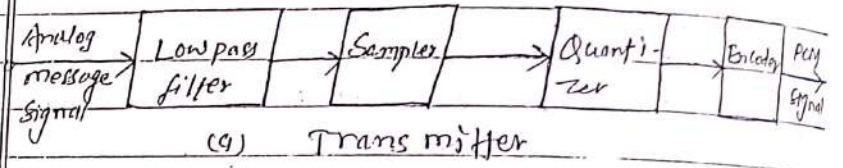 Analog
message
signal
Low pass
filter
Sampler
Quanti-
zer
Encoder
PCM
signal
(a) Transmitter